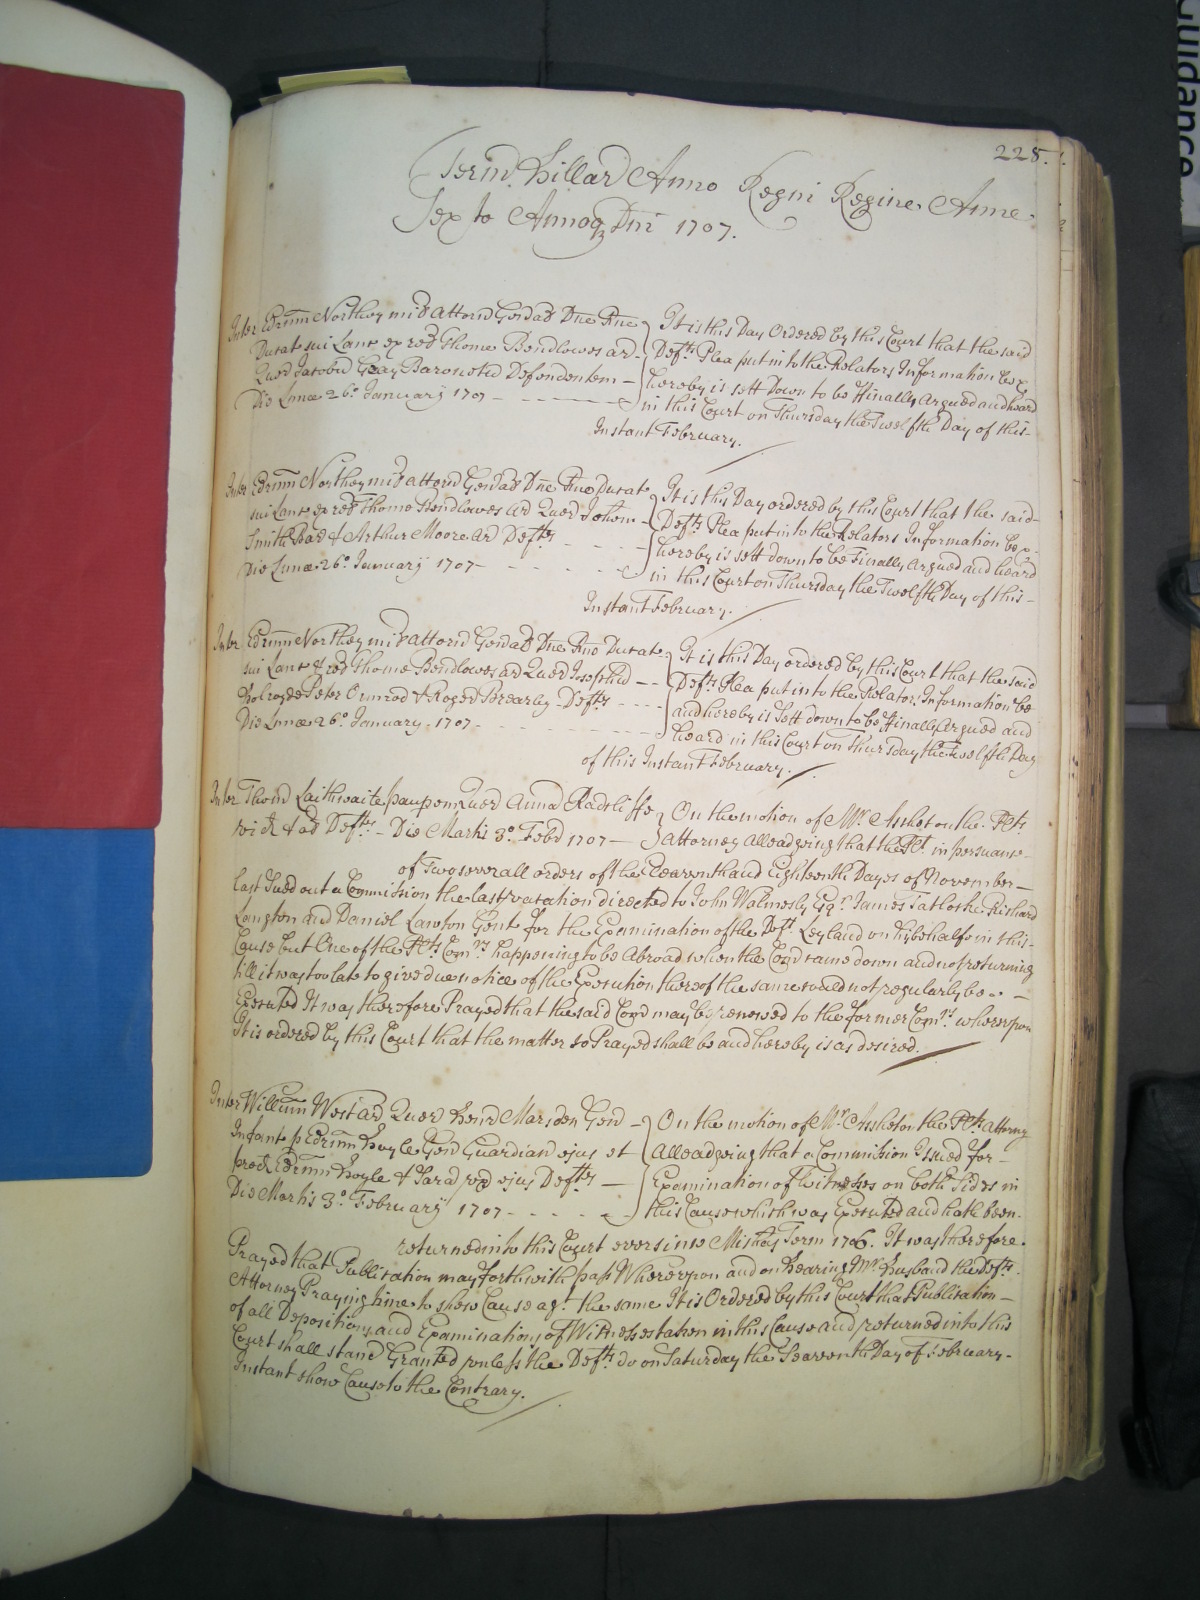 228.
Term Hillarij Anno Regni Regine Anne
Sexto Annoq Dni 1707.
Inter Edrum Northey mil Attorn Genal Dne Rne
Ducat sui Lanc ex rel Thome Bendlowes ar
Quer Jacobu Gray Baronettu Defendentem
Die Lune 26o January 1707
It is this Day Ordered by this Court that the said
Defts Plea put in to the Relators Information be &
hereby is sett Down to be ffinally Argued and heard
in this Court on Thursday the Twelfth Day of this
Instant February.
Inter Edrum Northey mil Attorn Genal Dne Rne Ducat
sui Lanc ex rel Thome Bendlowes ar Quer Johem
Smith Bar & Arthur Moore ar Defts
Die Lune 26o January 1707
It is this Day ordered by this Court that the said
Defts Plea put in to the Relators Information be &
hereby is sett down to be Finally Argued and heard
in this Court on Thursday the Twelfth Day of this
Instant February.
Inter Edrum Northey mil Attorn Genal Dne Rne Ducat
sui Lanc & rel Thome Bendlowes ar Quer Josephu
Holroyde Peter Ormrod & Roger Brearly Defts
Die Lune 26o January 1707
It is this Day ordered by this Court that the said
Defts Plea put in to the Relators Information be
and hereby is Sett down to be ffinally Argued and
heard in this Court on Thursday the Twelfth Day
of this Instant February.
Inter Thom Laithwaite pauperem Quer Anna Radcliffe
vid & al Defts Die Martis 3o Feb 1707
On the motion of Mr Assheton the Plts
Attorney Alleadgeing that the Plt in persuance
of Two severall orders of the Eleaventh and Eighteenth Dayes of November
last Sued out a Commission the last vacation directed to John Walmesly Esqr James Tatlocke Richard
Langton and Daniel Lawton Gent for the Examination of the Deft Leyland on his behalfe in this
Cause but One of the Plts Comrs happening to be Abroad when the Com came down and not returning
till it was too late to give due notice of the Execution thereof the same could not regularly be
Executed It was therefore Prayed that the said Com may be renewed to the former Comrs whereupon
It is ordered by this Court that the matter so Prayed shall be and hereby is as desired.
Inter Willum West ar Quer Henr Marsden Gen
Infant p Edrum Hoyle Gen Guardian ejus et
pred Edrum Hoyle & Sara ux ejus Defts
Die Martis 3o February 1707
On the motion of Mr Assheton the Plts Attorney
Alleadgeing that a Commission Issued for
Examination of Witnesses on both Sides in
this Cause which was Executed and hath been
returned into this Court ever since Michas Term 1706. It was therefore
Prayed that Publication may forthwith pass Whereupon and on hearing Mr Husband the Defts
Attorney Praying time to shew Cause agt the same It is Ordered by this Court that Publication
of all Depositions and Examinations of Witnesses taken in this Cause and returned into this
Court shall stand Granted unless the Defts do on Saturday the Seaventh Day of February
Instant show Cause to the Contrary.
Guidance